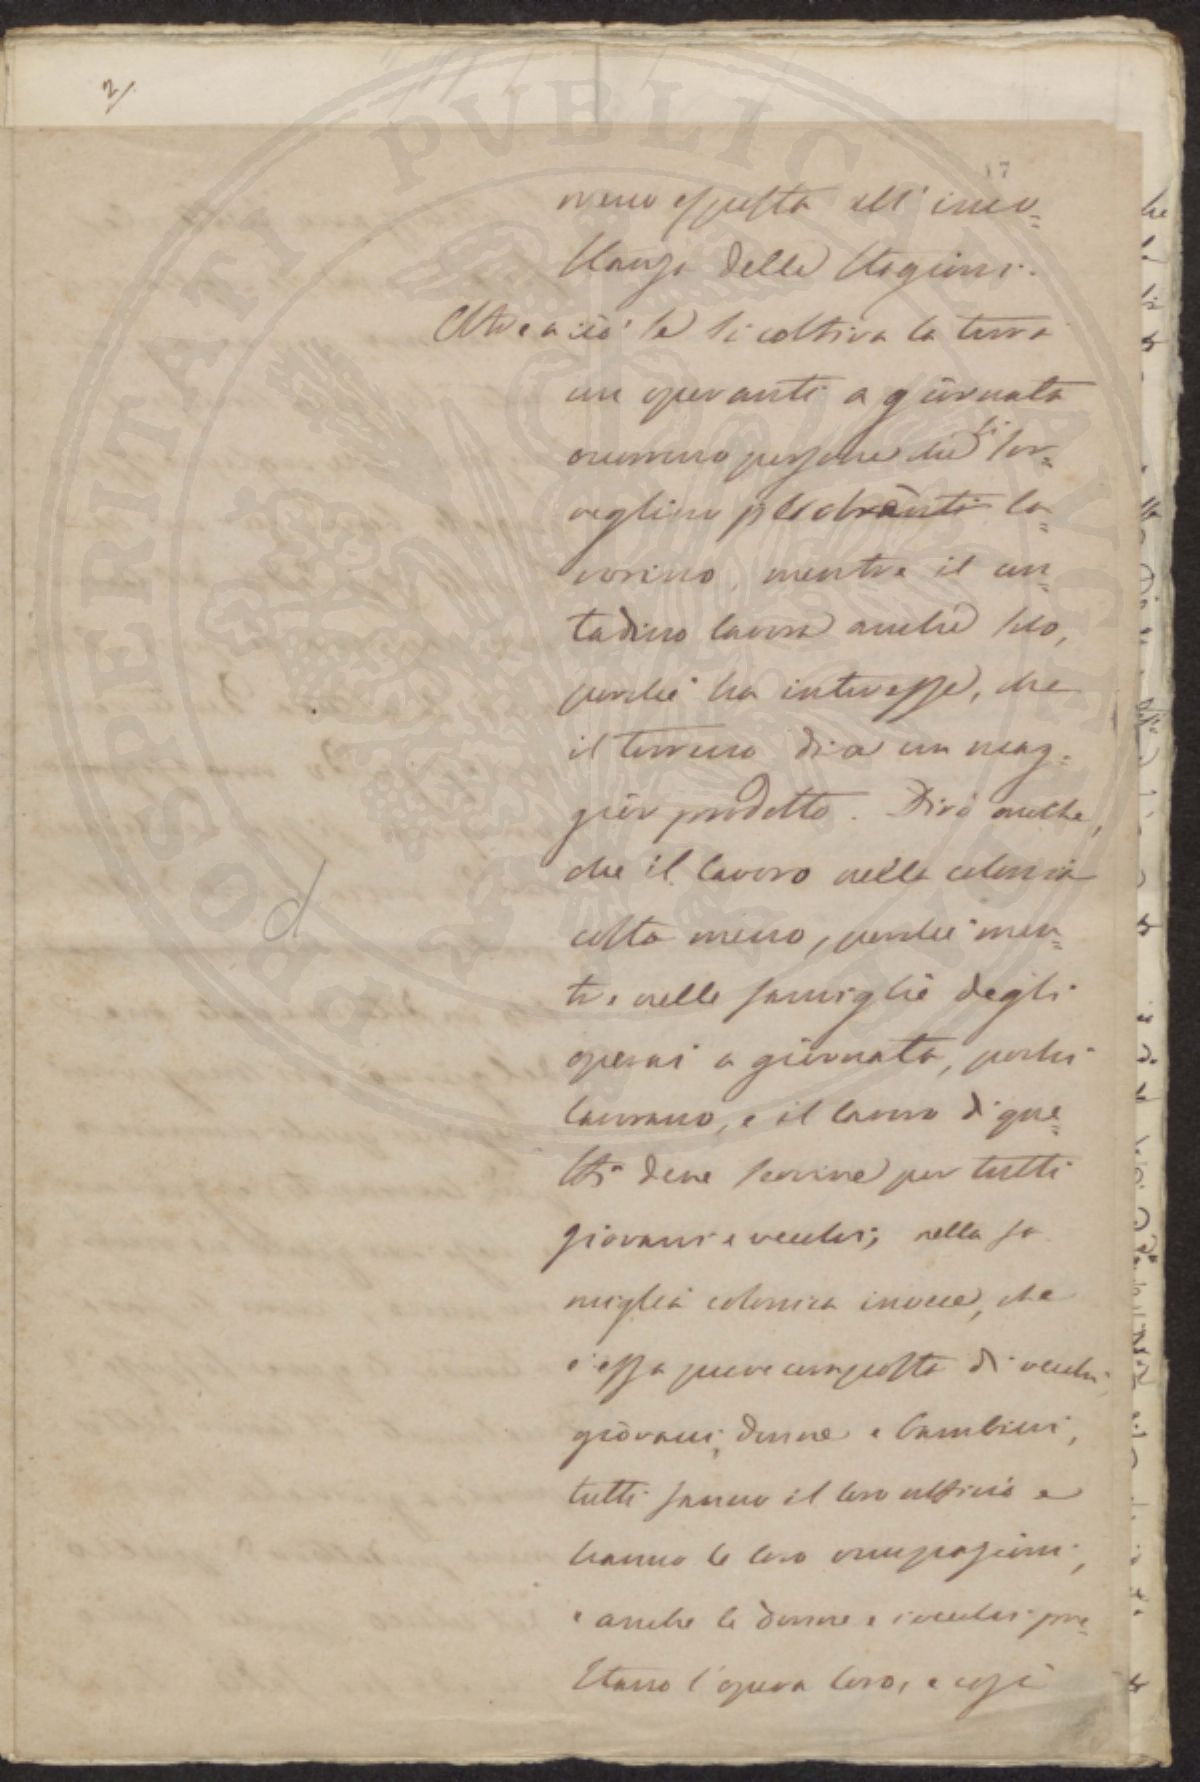 2/
17
meno esposta all'inco=
stanza delle stagioni.
Oltre a ciò se si coltiva la terra
con operanti a giornata
occorrono persone che li sor=
veglino la=
vorino, mentre il con=
tadino lavora anche solo,
perchè ha interesse, che
il terreno dia un mag=
gior prodotto. Dirò anche,
che il lavoro nella colonia
costa meno, perchè men=
tre nelle famiglie degli
operai a giornata, pochi
lavorano, e il lavoro di que=
sti deve servire per tutti
giovani e vecchi; nella fa
miglia colonica invece, che
è essa pure composta di vecchi,
giovani, donne e bambini,
tutti fanno il loro ufficio e
hanno le loro occupazioni,
e anche le donne e i vecchi pre=
stano l'opera loro, e così
d
PROSPERITATI PUBLICAE AVGENDAE